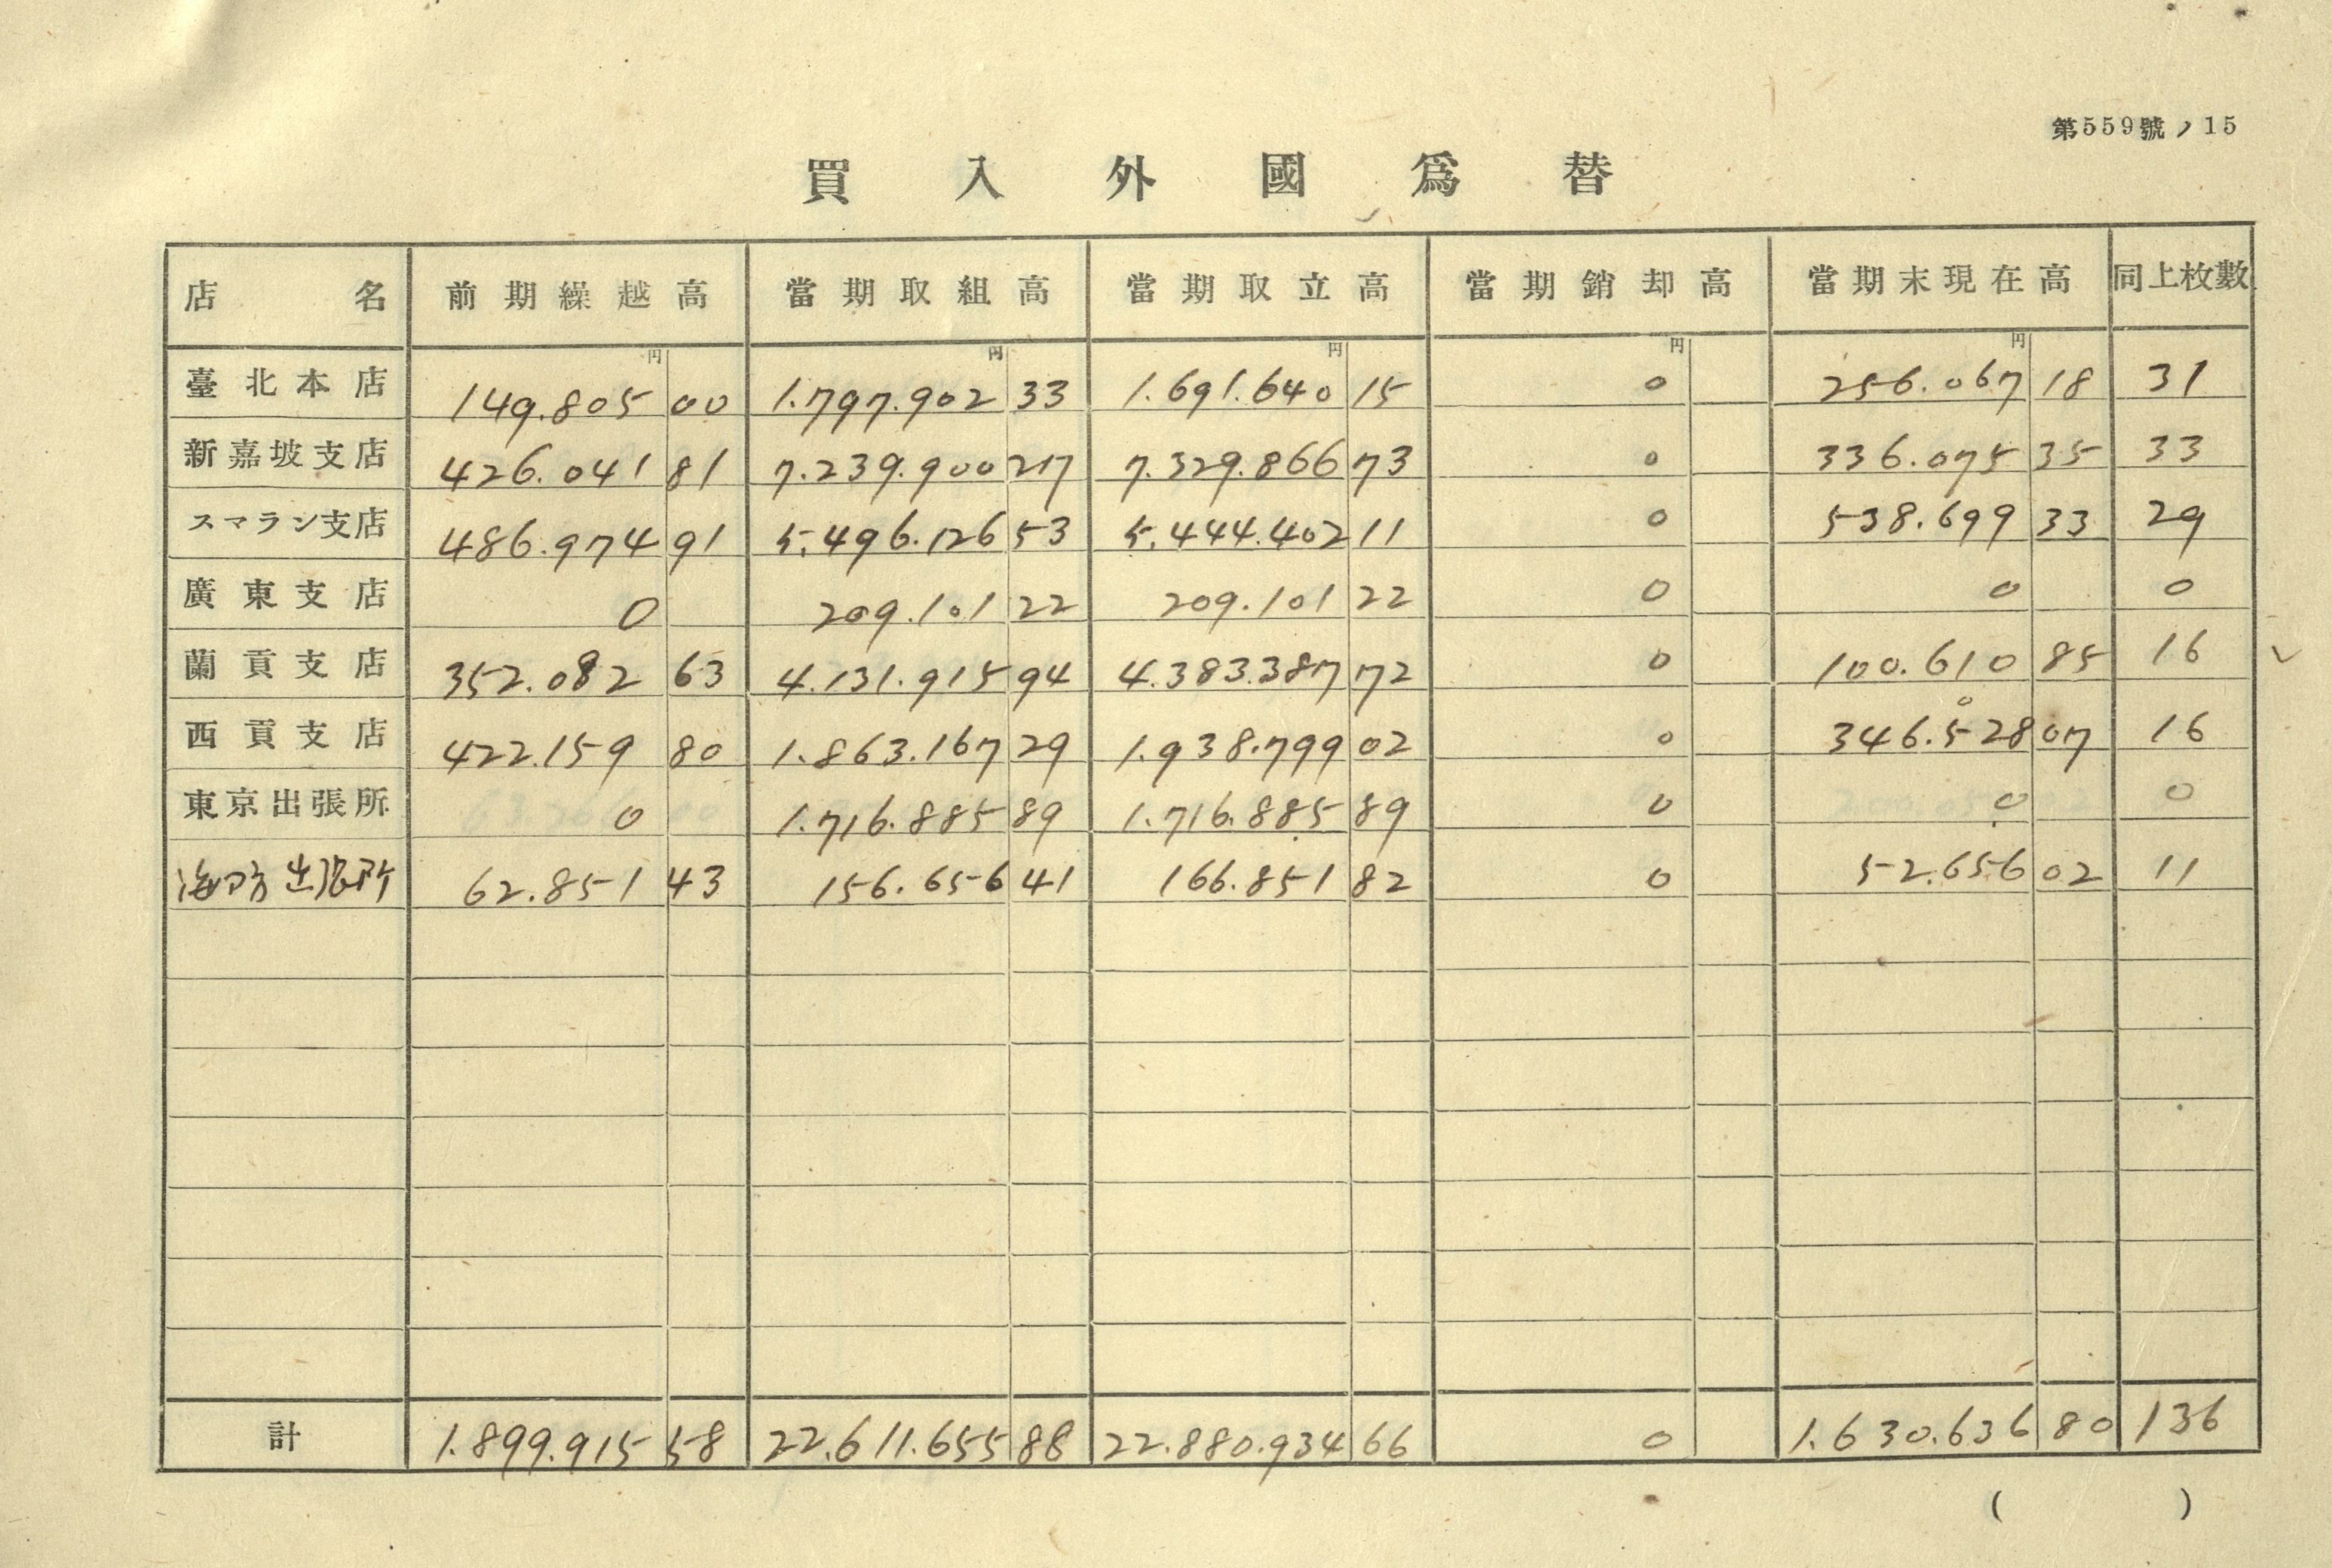 第559號ノ15
買入外國爲替
店名 前期繰越高 當期取組高 當期取立高 當期銷却高 當期末現在高 同上枚數
円 円 円 円 円
臺北本店 149.805 00 1.797.902 33 1.691.640 15 0 256.067 18 31
新嘉坡支店 426.041 81 7.239.900 27 7.329.866 73 0 336.075 35 33
スマラン支店 486.974 91 5.496.126 53 5.444.402 11 0 538.699 33 29
廣東支店 0 209.101 22 209.101 22 0 0 0
蘭貢支店 352.082 63 4.131.915 94 4.383.387 72 0 100.610 85 16
西貢支店 422.159 80 1.863.167 29 1.938.799 02 0 346.528 07 16
東京出張所 0 1.716.885 89 1.716.885 89 0 0 0
海防出張所 62.851 43 156.656 41 166.851 82 0 52.656 02 11
計 1.899.915 58 22.611.655 88 22.880.934 66 0 1.630.636 80 136
( )